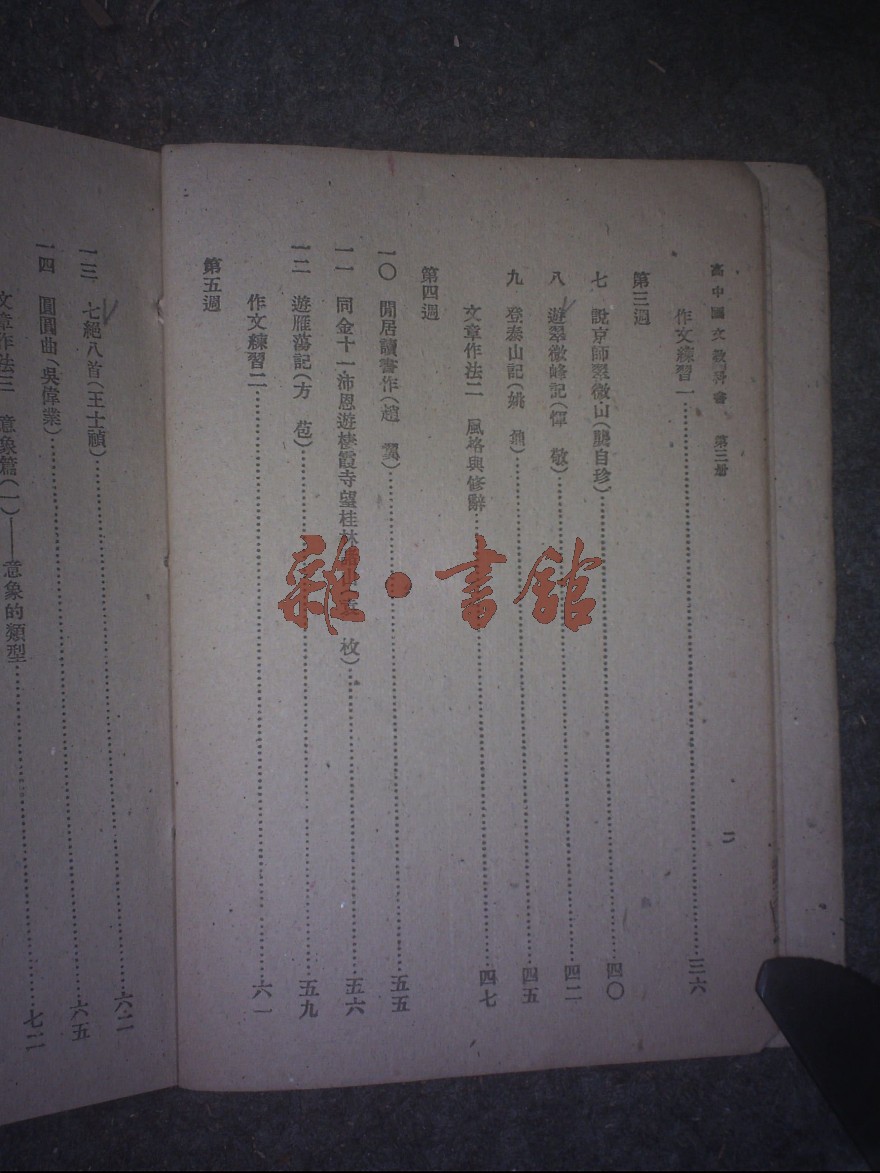 高中國文教科書　第三册
二
作文練習一……三六
第三週
七　說京師翠微山（龔自珍）……四〇
八　遊翠微峰記（惲　敬）……四二
九　登泰山記（姚　鼐）……四五
文章作法二　風格與修辭……四七
第四週
一〇　閒居讀書作（趙　翼）……五五
一一　同金十一沛恩遊棲霞寺望桂林　枚）……五六
一二　遊雁蕩記（方　苞）……五九
作文練習二……六一
第五週
一三　七絕八首（王士禎）……六二
一四　圓圓曲（吳偉業）……六五
文章作法三　意象篇（一）——意象的類型……七二
雜·書館